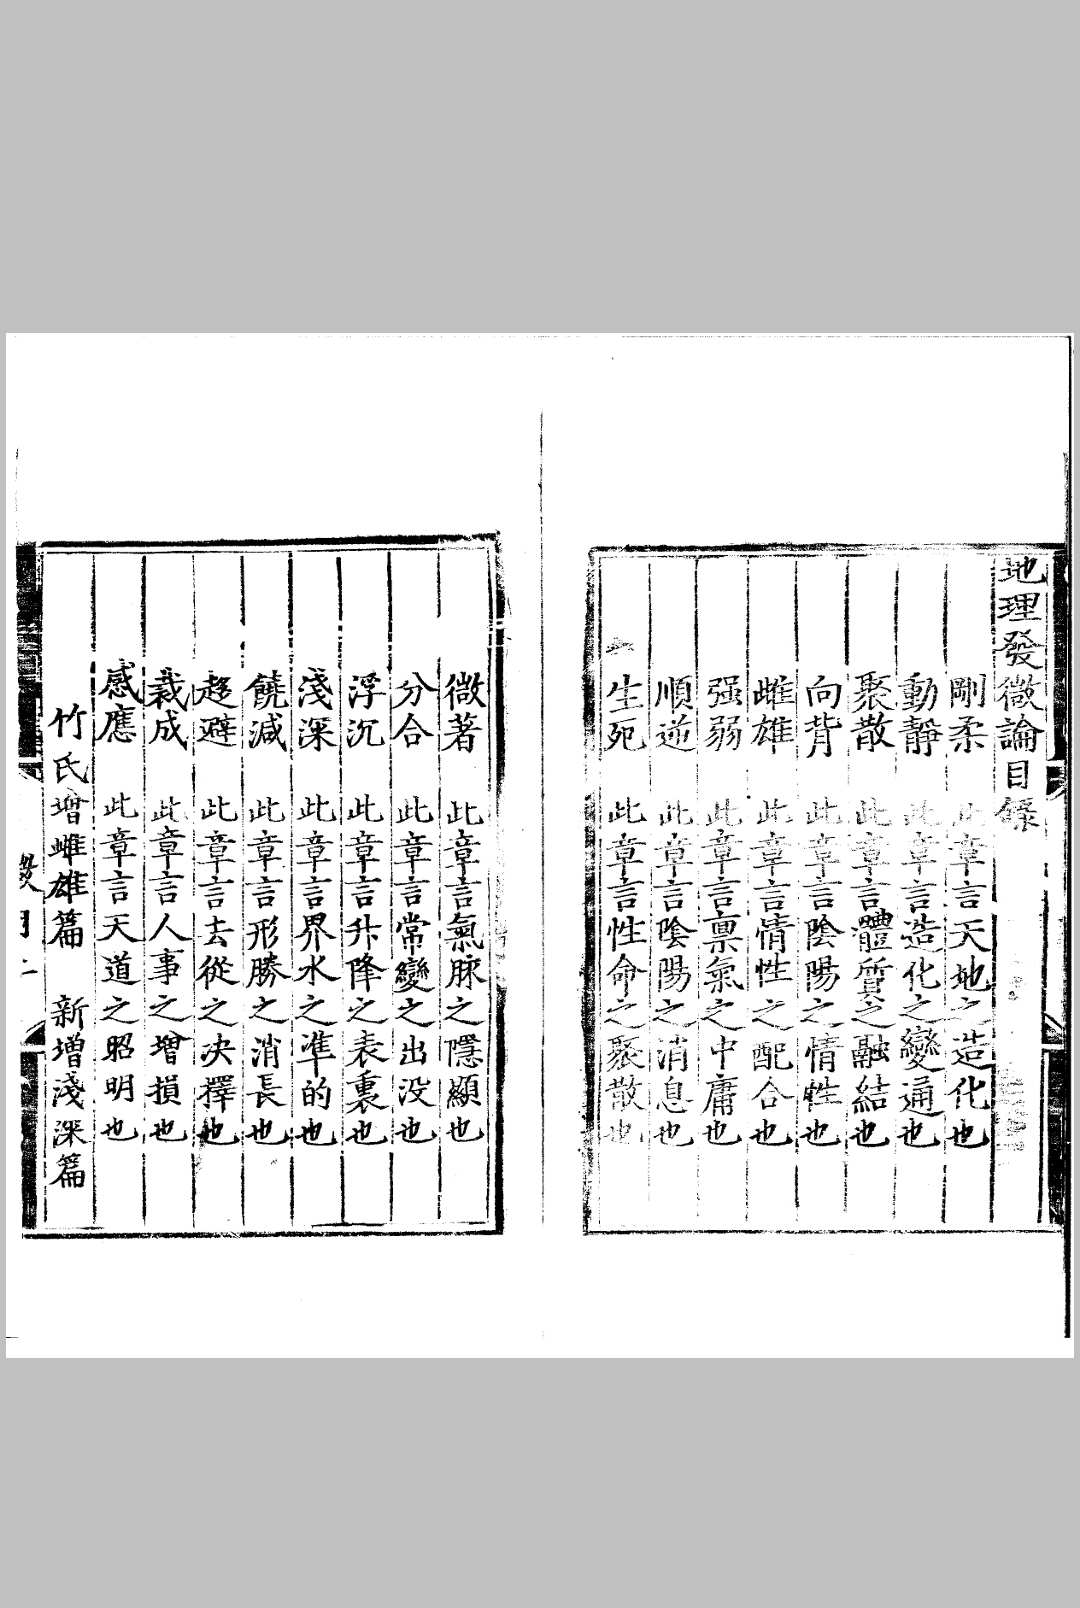 地理發微論目錄
剛柔 此章言天地之造化也
動靜 此章言造化之變通也
聚散 此章言體質之融結也
向背 此章言陰陽之情性也
雌雄 此章言情性之配合也
强弱 此章言禀氣之中庸也
順逆 此章言陰陽之消息也
生死 此章言性命之聚散也
微著 此章言氣脉之隱顯也
分合 此章言常變之出没也
浮沉 此章言升降之表裏也
淺深 此章言界水之準的也
饒減 此章言形勝之消長也
趨避 此章言去從之决擇也
裁成 此章言人事之增損也
感應 此章言天道之昭明也
竹氏增雌雄篇 新增淺深篇